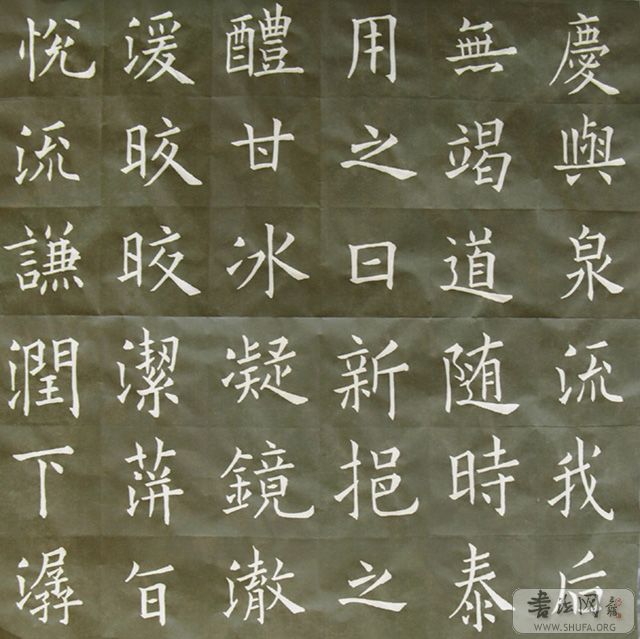 悅流謙潤下潺
湲晈晈潔蓱旨
醴甘冰凝鏡澈
用之日新挹之
無竭道随時泰
慶與泉流我后
書法网
WWW.SHUFA.ORG